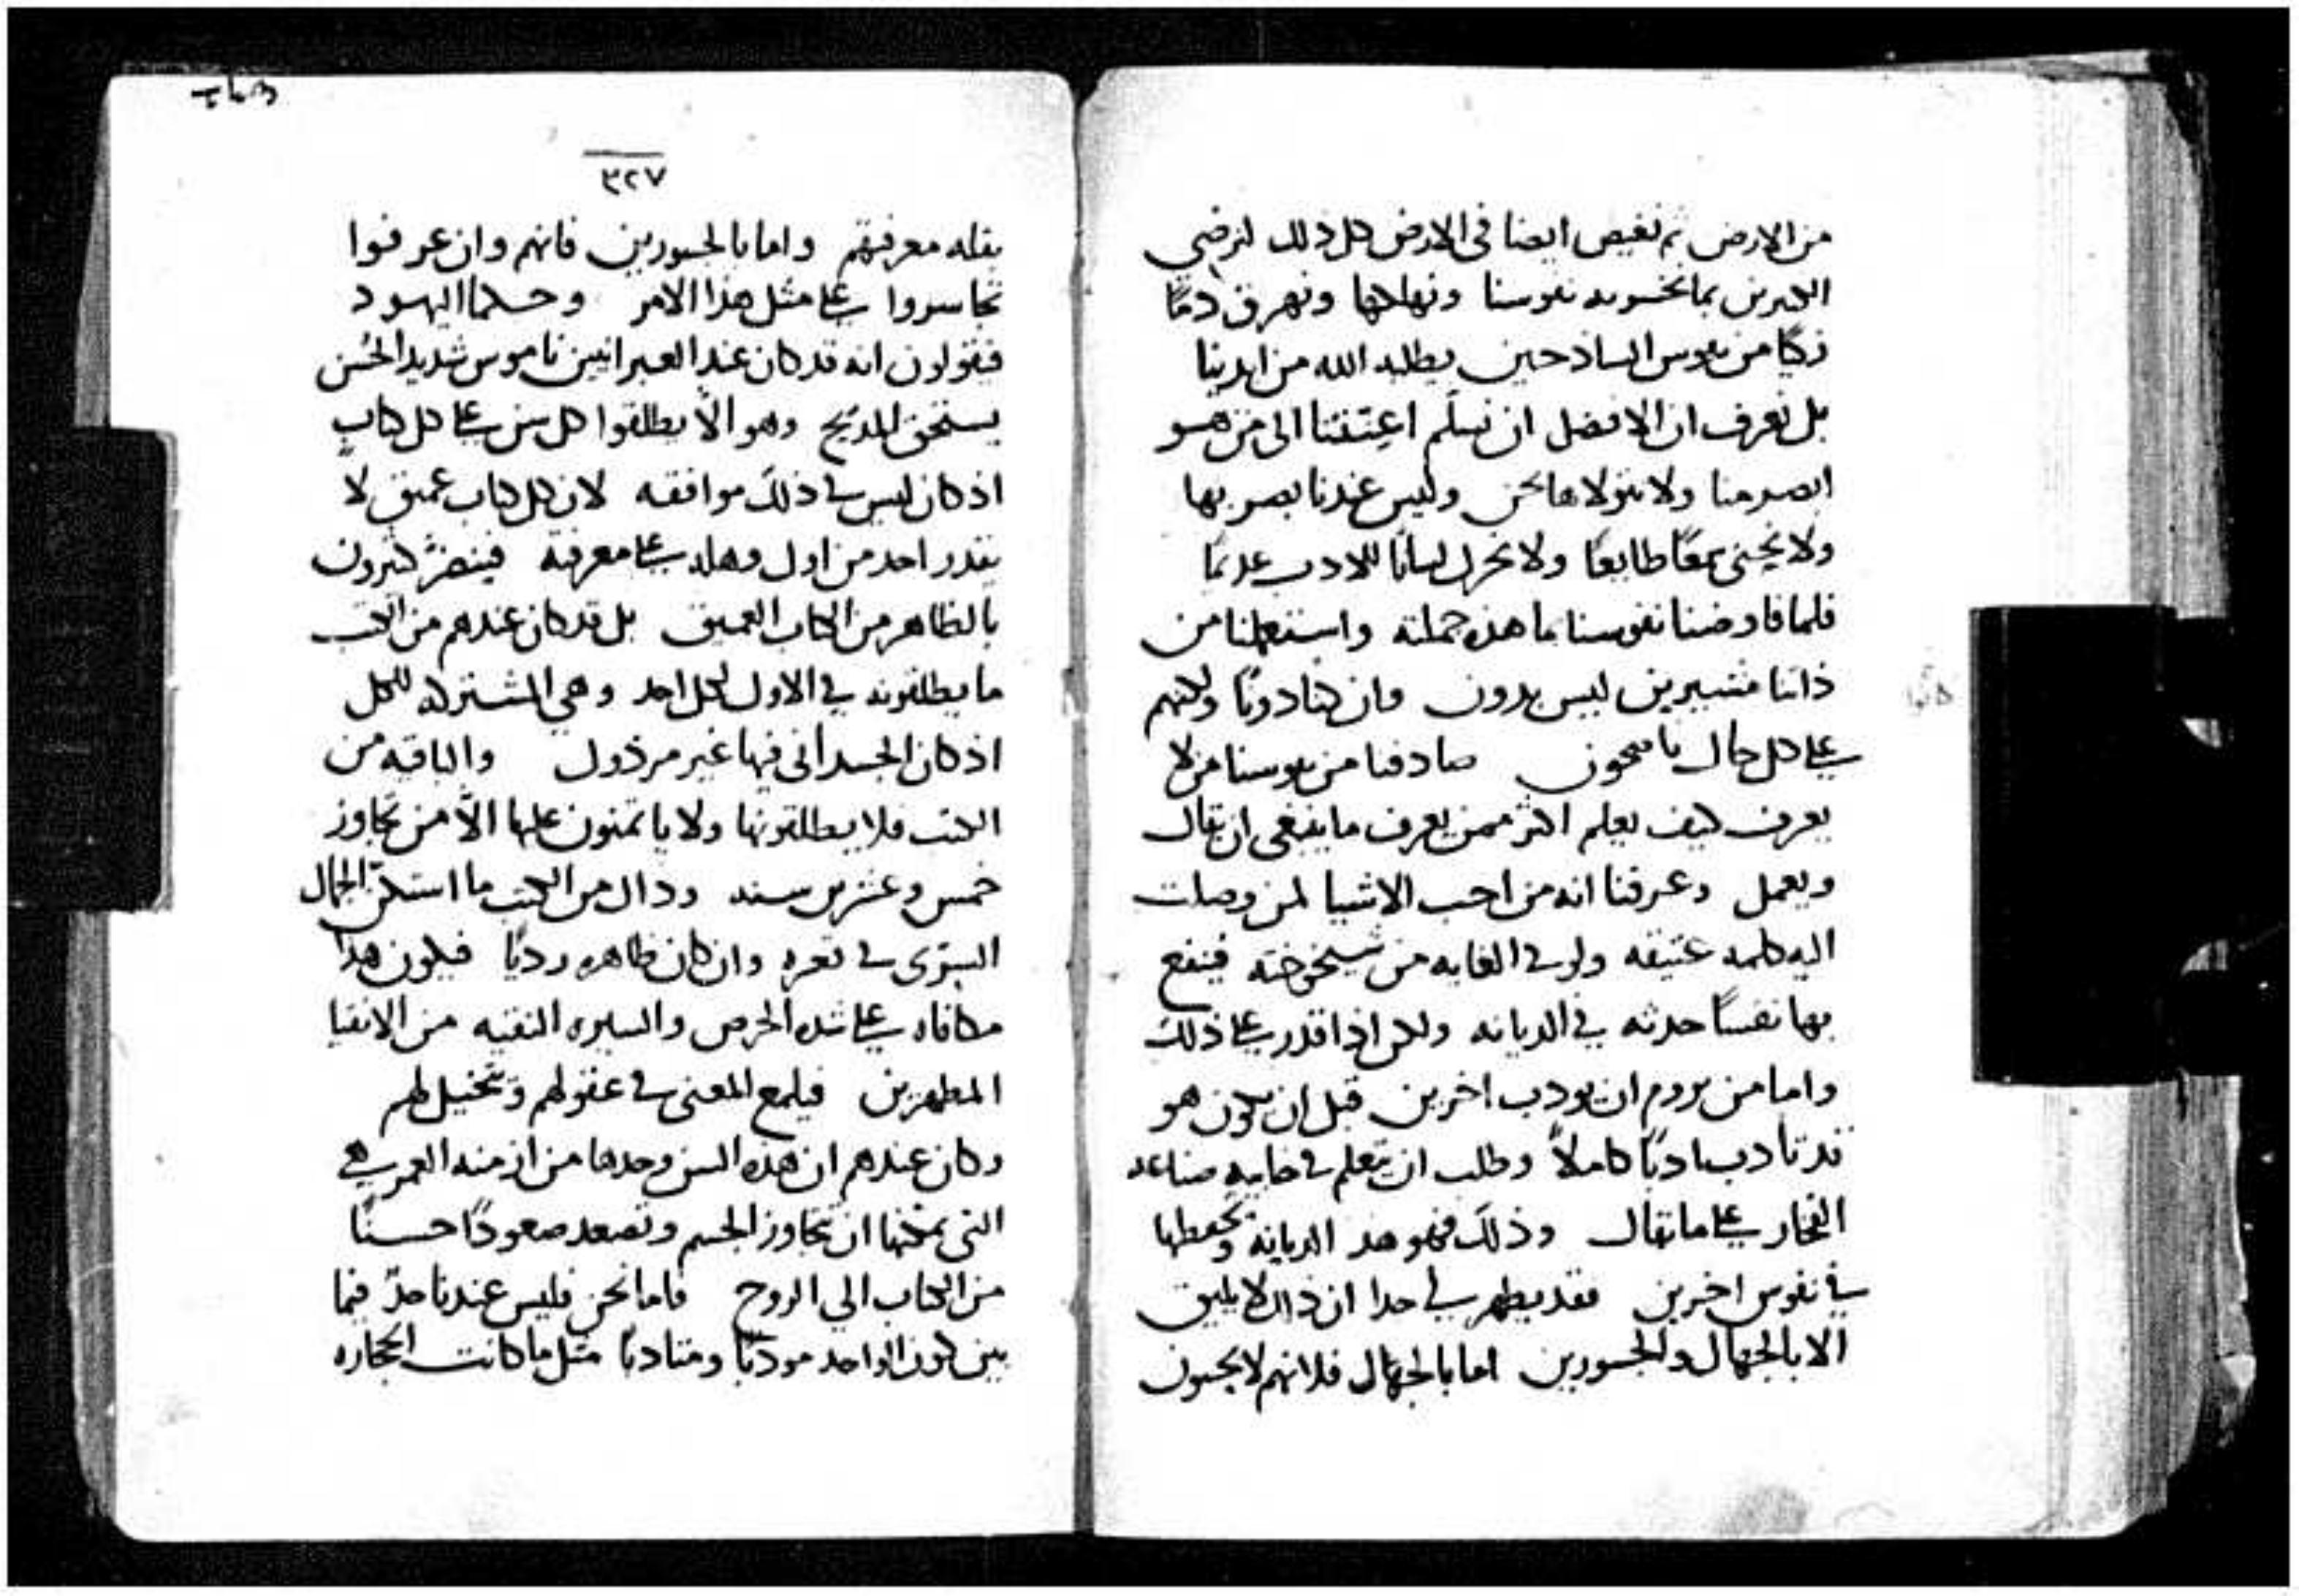 من الارض ثم نغيض ايضا في الارض كل ذلك لنرضي
الكثيرين بما تخسر به نفوسنا ونهلكها ونهرق دمًا
زكيًا من نفوس الساذجين يطلبه الله من ايدينا
بل نعرف ان الافضل ان نسلم اعنتنا الى من هو
ابصر منا ولا نتولاها نحن وليس عندنا بصر بها
ولا يحنى سمعًا طايعًا ولا نحرك لسانًا للادب عدمًا
فلما فاوضنا نفوسنا بما هذه جملته واستعملنا من
ذاتنا مشيرين ليس بدون وان كنا دونًا ولكنهم
على كل حال ناصحون صادفنا من نفوسنا من لا
يعرف كيف يعلم اكثر ممن يعرف ما ينبغي ان يقال
ويعمل وعرفنا انه من احب الاشيا لمن وصلت
اليه كلمه عتيقه ولو في الغايه من شيخوخته فينفع
بها نفسًا حدثه في الديانه ولكن اذا قدر على ذلك
واما من يروم ان يودب اخرين قبل ان يكون هو
قد تادب ادبًا كاملًا وطلب ان يتعلم في خابيه صناعه
الفخار على ما يقال وذلك فهو هذ الديانة وتحفظها
في نفوس اخرين فقد يظهر لي جدا ان ذاك لا يليق
الا بالجهال والجسورين اما بالجهال فلانهم لا يحسون
٣٢٧
بقله معرفتهم واما بالجسورين فانهم وان عرفوا
تجاسروا على مثل هذا الامر وحكما اليهود
فيقولون انه قد كان عند العبرانيين ناموس شديد الحُسن
يستحق المديح وهو الّا يطلقوا كل سن على كل كتابٍ
اذ كان ليس في ذلك موافقه لان كل كتاب عميق لا
يقدر احد من اول وهله على معرفته فينضرّ كثيرون
بالظاهر من الكتاب العميق بل قد كان عندهم من الكتب
ما يطلقونه في الاول لكل احد وهي المشتركه للكل
اذ كان الجسداني فيها غير مرذول والباقيه من
الكتب فلا يطلقونها ولا ياتمنون عليها الّا من تجاوز
خمس وعشرين سنه وذاك من الكتب ما استكنّ الجمال
السرّي في قعره وان كان ظاهره رديًا فيكون هذا
مكافاه على شده الحرص والسيره النقيه من الاتقيا
المطهرين فيلمع المعنى في عقولهم ويتخيل لهم
وكان عندهم ان هذه السن وحدها من ازمنه العمر هي
التي يمكنها ان تجاوز الجسم وتصعد صعودًا حسنًا
من الكتاب الي الروح فاما نحن فليس عندنا حدّ فيما
بين كون الواحد مودبًا ومتادبًا مثل ما كانت الحجاره